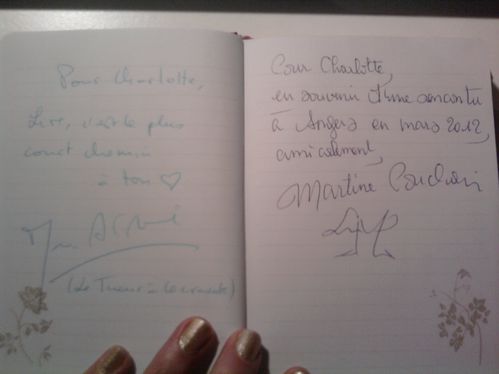 Pour Charlotte,
Lire, c'est le plus
court chemin
à toi ♡
(Le Tueur à la cravate)
Pour Charlotte,
en souvenir d'une rencontre
à Angers en mars 2012,
amicalement,
Martine Pouchain